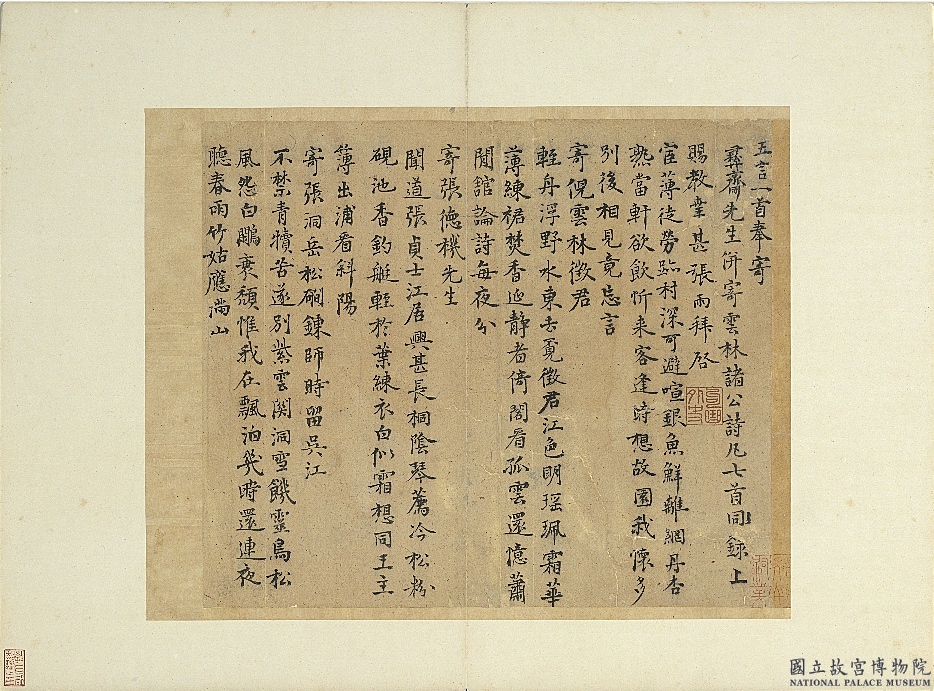 五言一首奉寄
彝齋先生併寄雲林諸公詩凡七首同錄上
賜教業甚張雨拜啓
宦薄徒勞跡村深可避喧銀魚鮮離網丹杏
熟當軒欲飲忻来客逢時想故園我懷多
別後相見竟忘言
寄倪雲林徵君
輕舟浮野水東去覓徵君江色明瑶珮霜華
薄練裙焚香延静者倚閣看孤雲還憶蕭
閒館論詩每夜分
寄張德機先生
聞道張貞士江居興甚長桐陰琴薦冷松粉
硯池香釣艇輕於葉練衣白似霜想同王主
簿出浦看斜陽
寄張洞岳松磵鍊師時留吳江
不禁青犢苦遂別紫雲関洞雪饑靈鳥松
風怨白鷴衰顏惟我在飄泊幾時還連夜
聽春雨竹姑應滿山
國立故宮博物院
NATIONAL PALACE MUSEUM